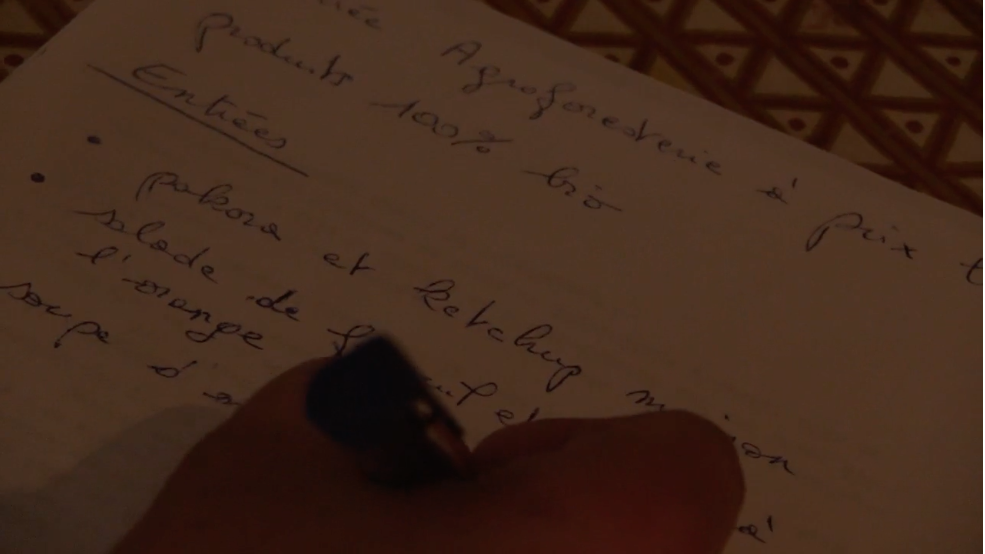 Agroforesterie à prix
produits 100% bio
Entrées
pakora et ketchup
salade de
l'orange à
soupe d'